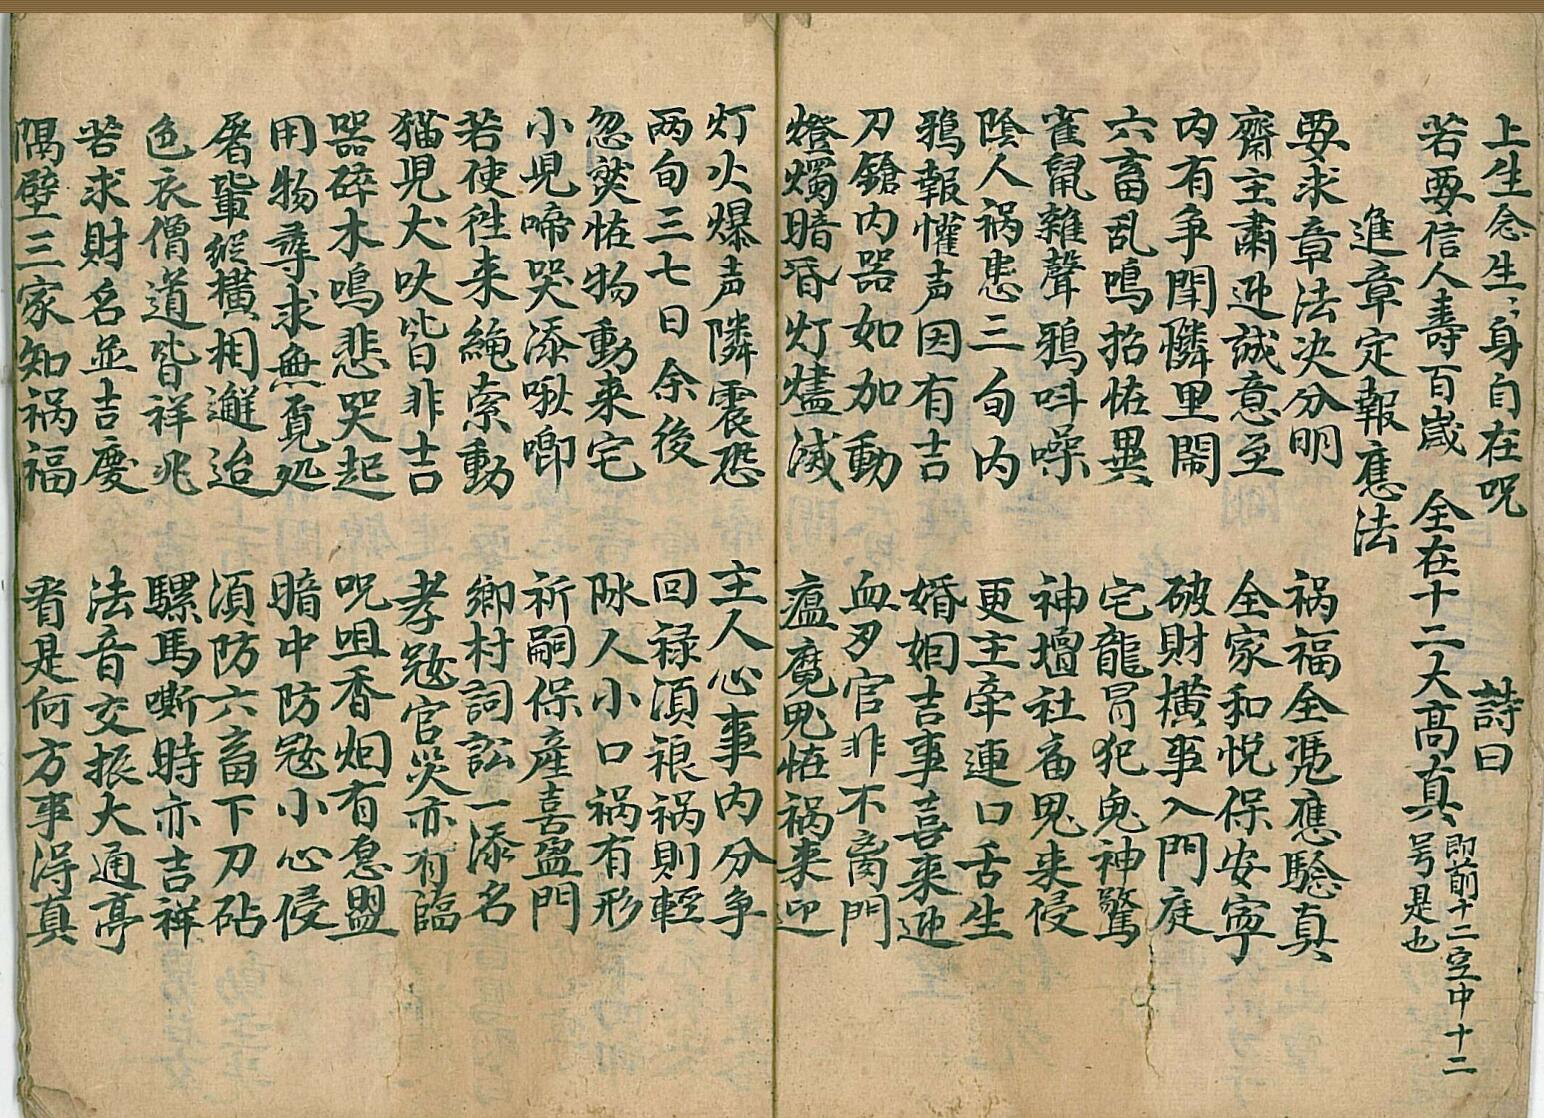 上生念生〻身自在呪　詩曰
若要信人壽百歲　全在十二大高真　即前十二宮中十二号是也
進章定報應法
要求章法决分明　祸福全凴應驗真
齋主肅迎誠意至　全家和悦保安寧
内有争閗憐里鬧　破財横事入門庭
六畜乱鳴招恠異　宅龍冐犯鬼神驚
雀鼠雜聲鴉呌噪　神壇社庙鬼来侵
陰人祸患三旬内　更主牵連口舌生
鴉報懽声因有吉　婚姻吉事喜来迎
刀鎗内器如加動　血刃官非不离門
燈燭暗昏灯燼滅　瘟魔鬼恠祸来迎
灯火爆声隣震恐　主人心事内分争
两旬三七日余後　回禄湏禳祸則輕
忽然恠物動来宅　陰人小口祸有形
小児啼哭添啾唧　祈嗣保産喜盈門
若使徃来繩索動　鄉村詞訟一添名
猫児犬吠皆非吉　孝冦官災亦有臨
器碎木鳴悲哭起　呪咀香烟有急盟
用物尋求無覔処　暗中防冦小心侵
屠輩縱横相邂迨　湏防六畜下刀砧
色衣僧道皆祥兆　騾馬嘶時亦吉祥
若求財名並吉慶　法音交振大通亭
隅壁三家知祸福　看是何方事得真